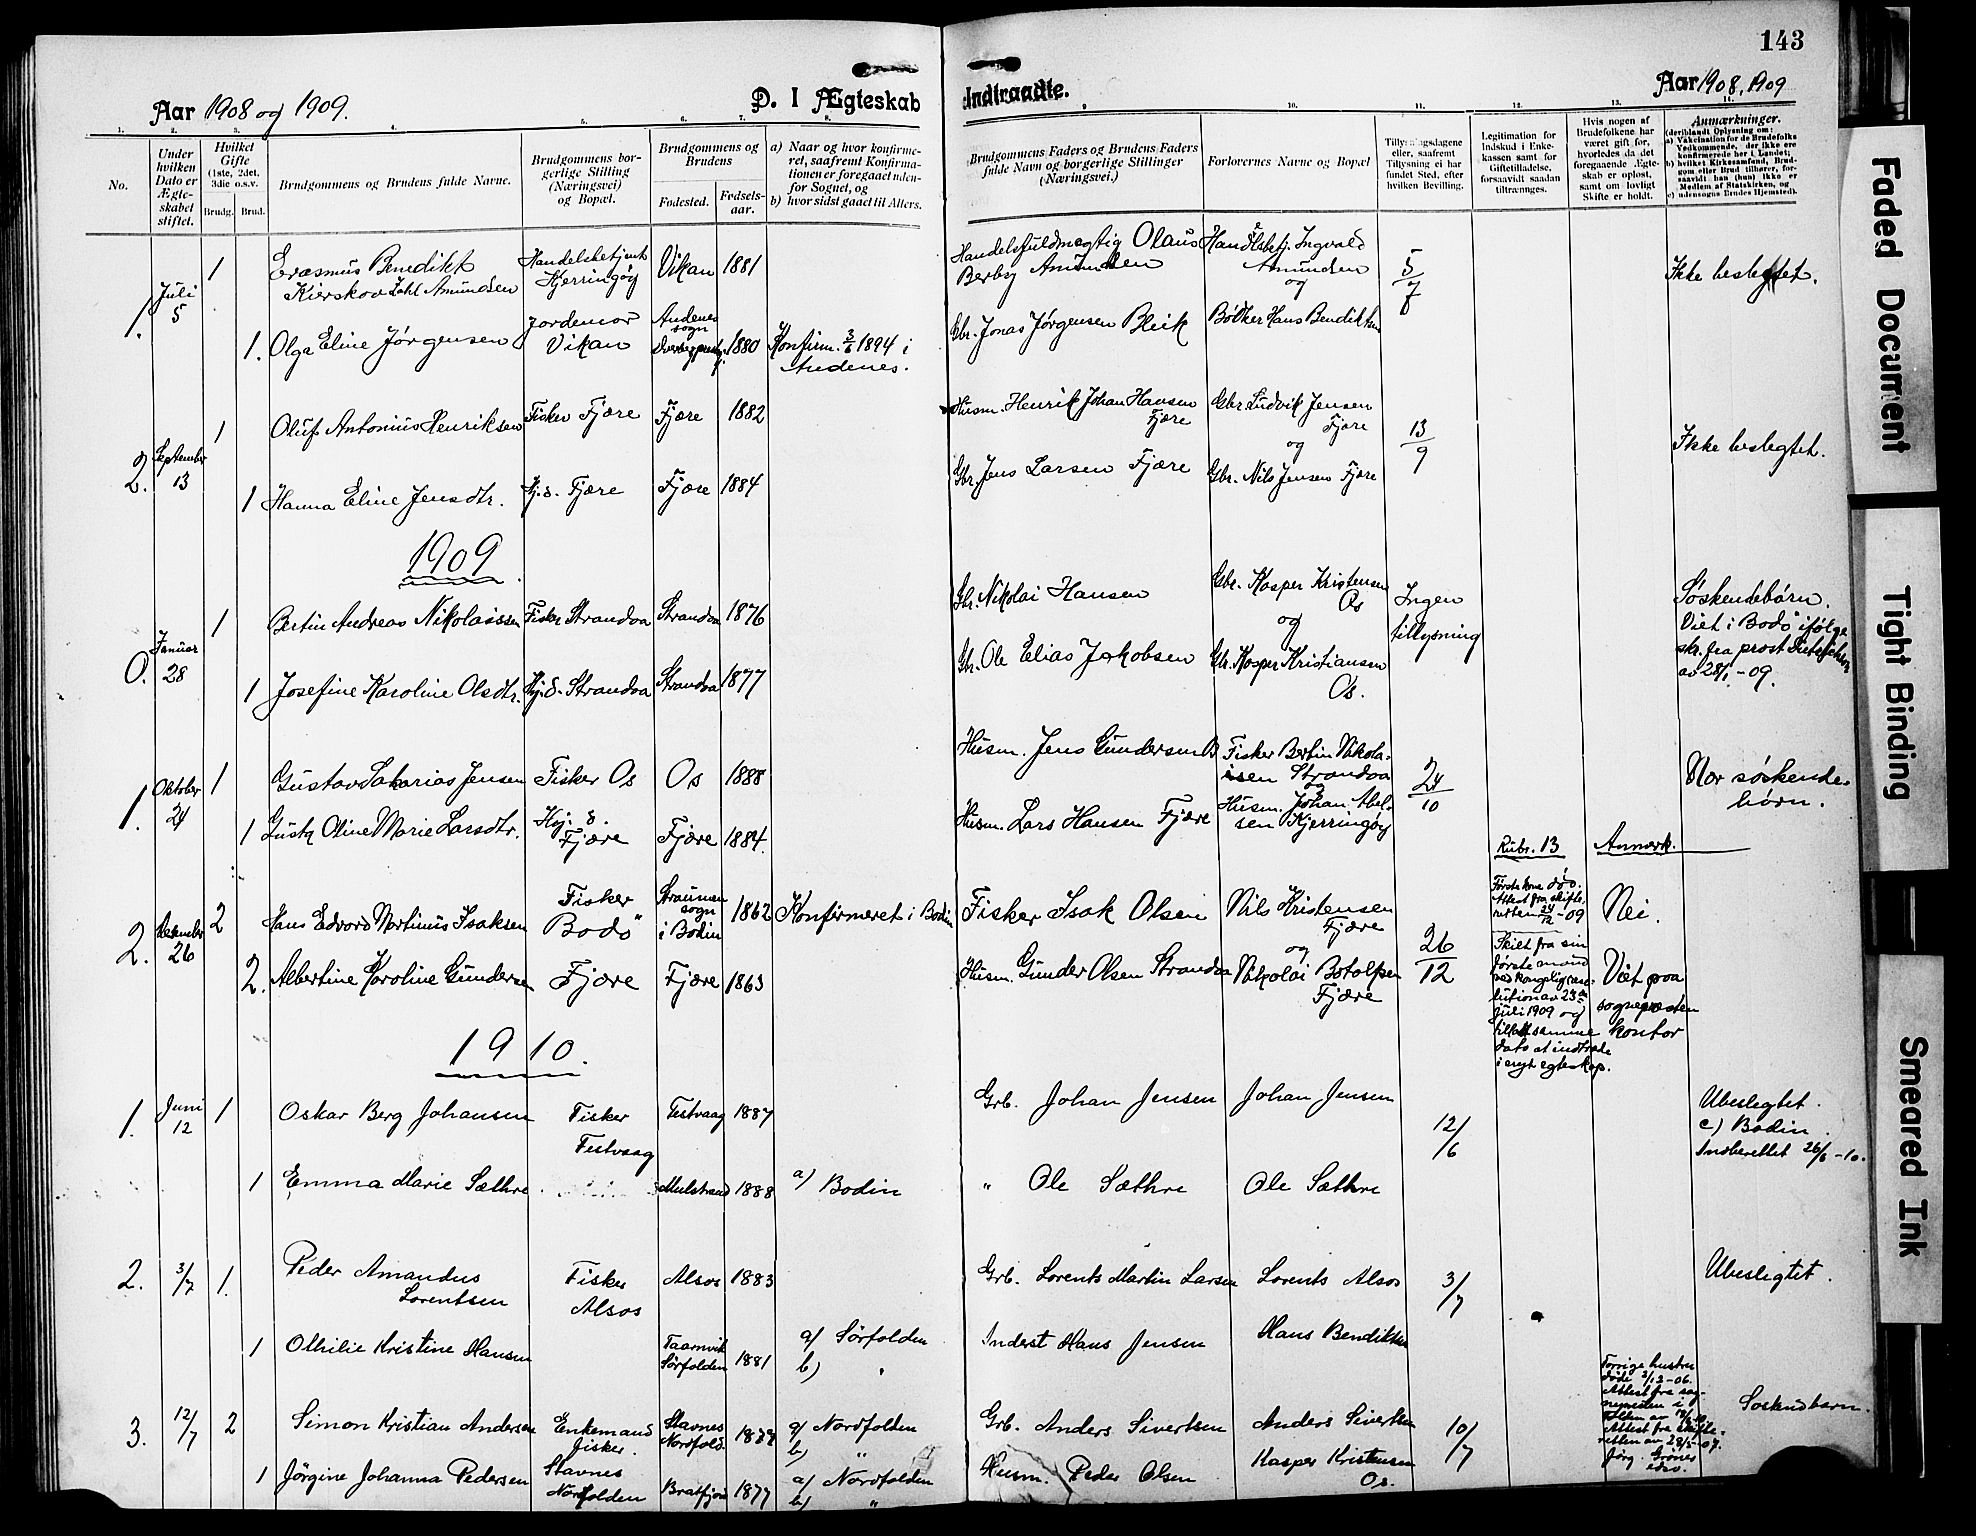 143
Aar 1908 og 1909.
D. I Ægteskab Indtraadte.
Aar 1908, 1909
1. 2. 3. 4. 5. 6. 7. 8. 9. 10. 11. 12. 13. 14.
No.
Under hvilken Dato er Ægteskabet stiftet.
Hvilket Gifte (1ste, 2det, 3die o.s.v.
Brudg. Brud.
Brudgommens og Brudens fulde Navne.
Brudgommens borgerlige Stilling (Næringsvei) og Bopæl.
Brudgommens og Brudens
Fødested. Fødselsaar.
a) Naar og hvor konfirmeret, saafremt Konfirmationen er foregaaet udenfor Sognet, og
b) hvor sidst gaaet til Alters.
Brudgommens Faders og Brudens Faders fulde Navn og borgerlige Stillinger (Næringsvei.)
Forlovernes Navne og Bopæl
Tillysningsdagene eller, saafremt Tillysning ei har fundet Sted, efter hvilken Bevilling.
Legitimation for Indskud i Enkekassen samt for Giftetilladelse, forsaavidt saadan tiltrænges.
Hvis nogen af Brudefolkene har været gift før, hvorledes da det foregaaende Ægteskab er opløst, samt om lovligt Skifte er holdt.
Anmærkninger.
(deriblandt Oplysning om:
a) Vakcination for de Brudefolks Vedkommende, der ikke ere konfirmerede her i Landet;
b) hvilket Kirkesamfund, Brudgom eller Brud tilhører, forsaavidt han (hun) ikke er Medlem af Statskirken, og
c) udensogns Brudes Hjemsted).
1. Juli 5 1 Erasmus Benedikt Kierskov Zahl Amundsen Handelsbetjent Kjerringøy Vikan 1881 Handelsfuldmægtig Olaus Berby Amundsen Handelsbetj. Ingvald Amundsen og 5/7 Ikke beslegtet.
1. Olga Eline Jørgensen Jordemor Vikan Andenes sogn 1880 Konfirm. 3/6 1894 i Andenes. Gbr. Jonas Jørgensen Bleik Bødker Hans Bendiktsen
2. September 13 1 Oluf Antonius Henriksen Fisker Fjære Fjære 1882 Husm. Henrik Johan Hansen Fjære Gbr. Ludvik Jensen Fjære og 13/9 Ikke beslegtet.
1 Hanna Eline Jensdtr. Hj. d. Fjære Fjære 1884 Gbr. Jens Larsen Fjære Gbr. Nils Jensen Fjære
1909.
0. Januar 28 1 Bertin Andreas Nikolaissen Fisker Strandaa Strandaa 1876 Gbr. Nikolai Hansen Gbr. Kasper Kristensen Os og Ingen tillysning Søskendebørn. Viet i Bodø ifølge skr. fra prost av 28/1 - 09.
1 Josefine Karoline Olsdtr. Hj. d. Strandaa Strandaa 1877 Gbr. Ole Elias Jakobsen Gbr. Kasper Kristiansen Os.
1. Oktober 24 1 Gustav Sakarias Jensen Fisker Os Os 1888 Husm. Jens Gundersen Os Fisker Bertin Nikolaisen Strandaa og 24/10 Nær søskendebørn.
1 Gusta Oline Marie Larsdtr. Hj. d. Fjære Fjære 1884. Husm. Lars Hansen Fjære Husm. Johan Abelsen Kjerringøy
Rubr. 13 Anmærk.
2. December 26 2 Hans Edvard Martinus Isaksen Fisker Bodø Straumen sogn i Bodin 1862 Konfirmeret i Bodin Fisker Isak Olsen Nils Kristensen Fjære og 26/12 Første kone død. Attest fra skifteretten 24/12 - 09 Nei.
2. Albertine Karoline Gundersen Fjære Fjære 1863 Husm. Gunder Olsen Strandaa Nikolai Botolfsen Fjære Skilt fra sin første mand ved kongelig resolution av 23de juli 1909 og tillatt samme dato at indtræde i nyt egteskap. Viet paa sogneprestens kontor
1910.
1. Juni 12 1 Oskar Berg Johansen Fisker Festvaag Festvaag 1887 Grb. Johan Jensen Johan Jensen 12/6 Ubeslegtet. c) Bodin. Indberettet 26/6 - 10.
1 Emma Marie Sæthre Mulstrand 1888 a) Bodin " Ole Sæthre Ole Sæthre
2. 3/7 1. Peder Amandus Lorentsen Fisker Alsos Alsos 1883 Grb. Lorents Martin Larsen Lorents Alsos 3/7 Ubeslegtet.
1 Othilie Kristine Hansen Taarnvik Sørfolden 1881 a) Sørfolden b) " Inderst Hans Jensen Hans Bendiktsen
3. 12/7 2 Simon Kristian Andersen Enkemand fisker. Stavnes Nordfold. a) Nordfolden b) " Grb. Anders Sivertsen Anders Sivertsen 10/7 Forrige hustru døde 2/12 - 06. Attest fra skifteretten av 28/5 - 07. Søskendbarn.
1 Jørgine Johanna Pedersen Stavnes Nordfolden Bratfjord 1877 a) Nordfolden b) " Husm. Peder Olsen Kasper Kristensen Os.
Faded Document
Tight Binding
Smeared Ink